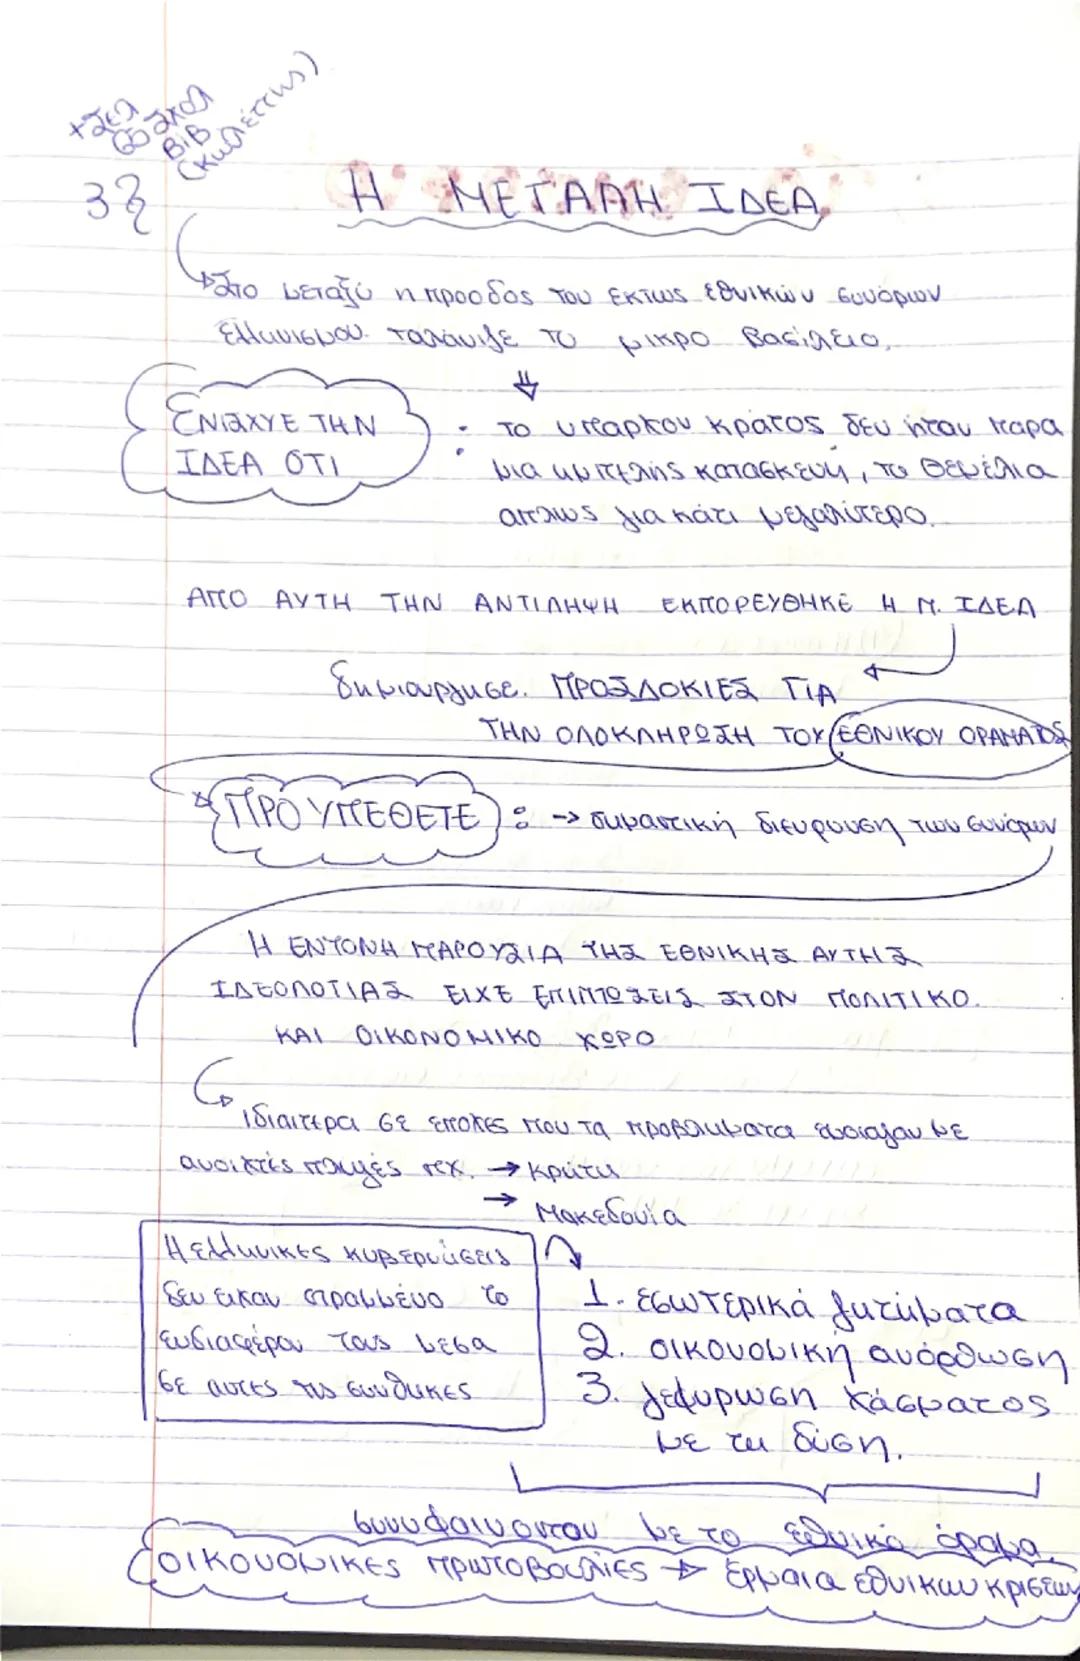 +Σελ
σχολ
Βιβ
(Κωλέττης)
3
Η ΜΕΓΑΛΗ ΙΔΕΑ
Στο μεταξύ η πρόοδος του εκτως εθνικών συνόρων
Ελληνισμού ταλάνιζε το μικρό Βασίλειο.
ΕΝΙΣΧΥΕ ΤΗΝ
ΙΔΕΑ ΟΤΙ
: το υπαρχον κράτος δεν ήταν παρα
μια ημιτελής κατασκευή, τα θεμέλια
απλως για κάτι μεγαλύτερο.
ΑΠΟ ΑΥΤΗ ΤΗΝ ΑΝΤΙΛΗΨΗ ΕΚΠΟΡΕΥΘΗΚΕ Η Μ. ΙΔΕΑ
δημιούργησε ΠΡΟΣΔΟΚΙΕΣ ΓΙΑ
ΤΗΝ ΟΛΟΚΛΗΡΩΣΗ ΤΟΥ ΕΘΝΙΚΟΥ ΟΡΑΜΑΤΟΣ
ΠΡΟΥΠΕΘΕΤΕ : → σημαντική διεύρυνση των συνόρων
Η ΕΝΤΟΝΗ ΠΑΡΟΥΣΙΑ ΤΗΣ ΕΘΝΙΚΗΣ ΑΥΤΗΣ
ΙΔΕΟΛΟΓΙΑΣ ΕΙΧΕ ΕΠΙΠΤΩΣΕΙΣ ΣΤΟΝ ΠΟΛΙΤΙΚΟ
ΚΑΙ ΟΙΚΟΝΟΜΙΚΟ ΧΩΡΟ
ιδιαιτερα σε εποχες που τα προβληματα έμοιαζαν με
ανοιχτές πληγές πχ. → Κρήτη
→ Μακεδονία
Η ελληνικες κυβερνήσεις
δεν ειχαν στραμμένο το
ενδιαφέρον τους μεσα
σε αυτες τις συνθηκες
1. εσωτερικά ζητήματα
2. οικονομική ανόρθωση
3. γεφύρωση χάσματος
με τη δύση.
συνυφαινονταν με το εθνικό όραμα.
οικονομικες πρωτοβουλιες → έρμαια εθνικων κρισεων